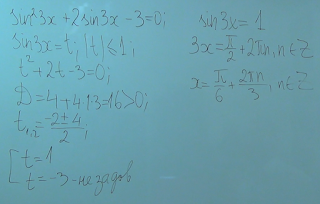 sin²3x + 2sin3x - 3 = 0;
sin3x = t; |t| ≤ 1;
t² + 2t - 3 = 0;
D = 4 + 4·3 = 16 > 0;
t₁,₂ = (-2 ± 4)/2;
[ t = 1
t = -3 - не задов
sin3x = 1
3x = π/2 + 2πn, n∈Z
x = π/6 + 2πn/3, n∈Z